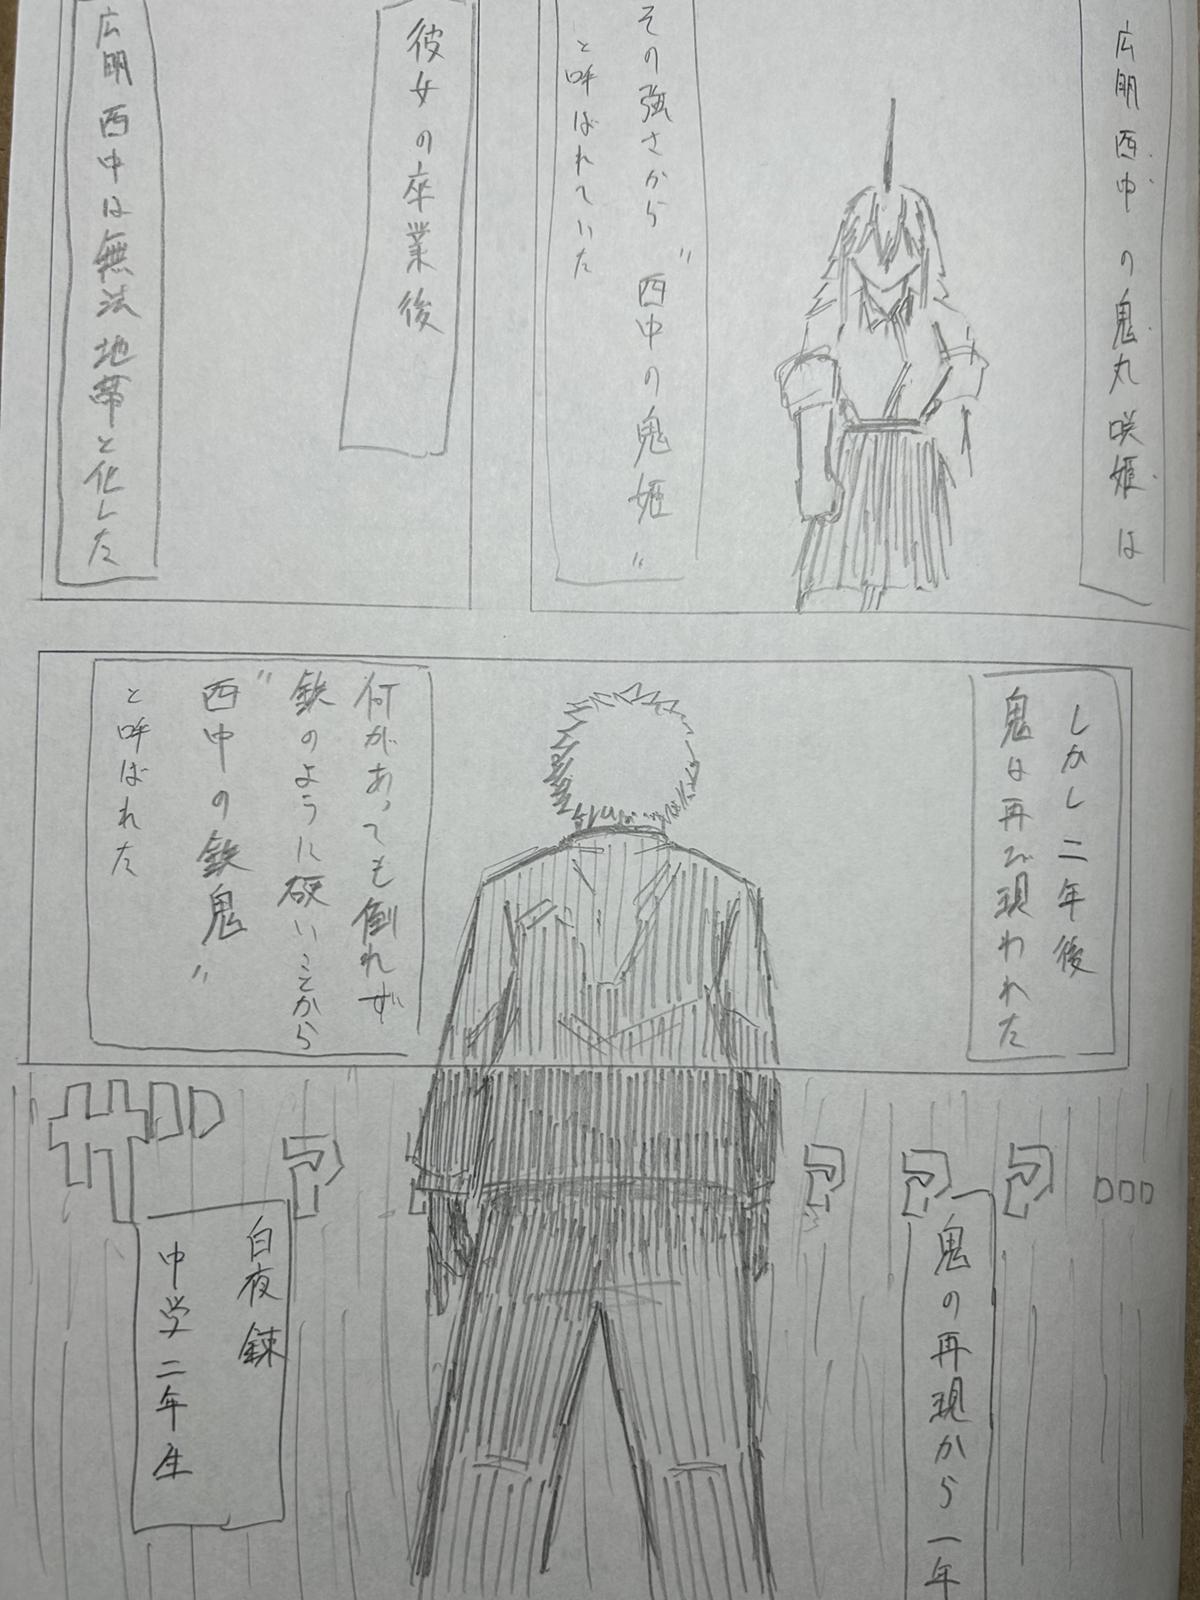 広明西中の鬼丸咲姫は
その強さから"西中の鬼姫"
と呼ばれていた
彼女の卒業後
広明西中は無法地帯と化した
しかし二年後
鬼は再び現われた
何があっても倒れず
鉄のように硬いことから
"西中の鉄鬼"
と呼ばれた
鬼の再現から一年
白夜錬
中学二年生